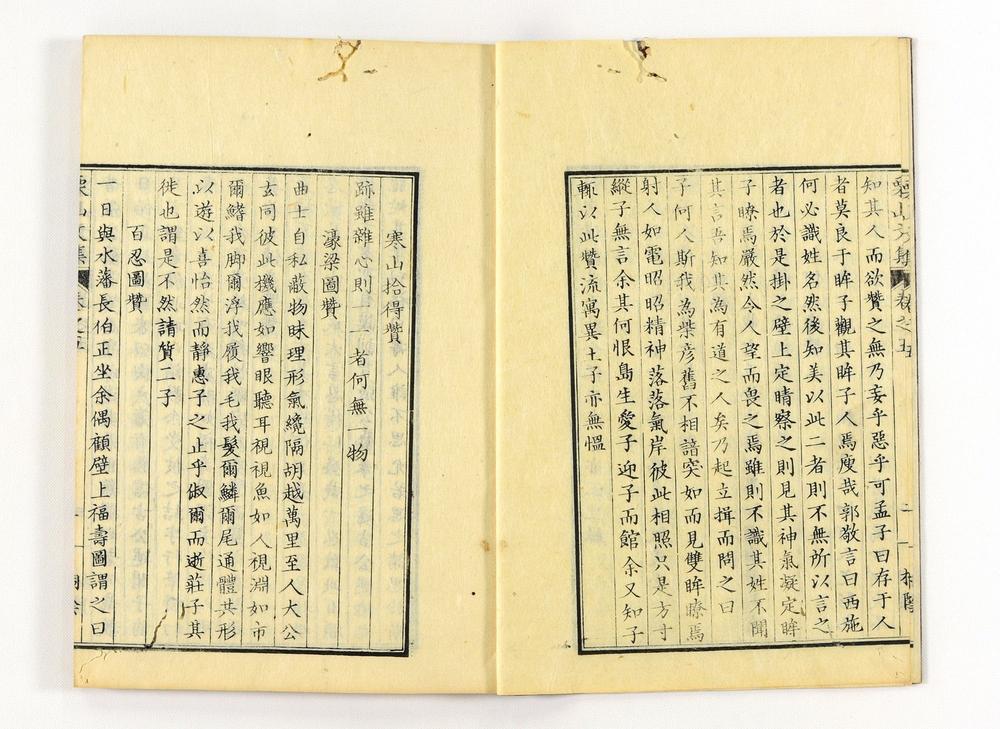 知其人而欲贊之無乃妄乎惡乎可孟子曰存于人
者莫良于眸子觀其眸子人焉廋哉郭敬言曰西施
何必識姓名然後知美以此二者則不無所以言之
者也於是掛之壁上定晴察之則見其神氣凝定眸
子瞭焉嚴然令人望而畏之焉雖則不識其姓不聞
其言吾知其為有道之人矣乃起立揖而問之曰
子何人斯我為柴彦舊不相諳突如而見雙眸瞭焉
射人如電昭昭精神落落氣岸彼此相照只是方寸
縱子無言余其何恨島生愛子迎子而館余又知子
輒以此贊流寓異土子亦無慍
寒山拾得贊
跡雖雜心則一一者何無一物
濠梁圖贊
曲士自私蔽物昧理形氣纔隔胡越萬里至人大公
玄同彼此機應如響眼聽耳視視魚如人視淵如市
爾鰭我脚爾浮我履我毛我髮爾鱗爾尾通體共形
以遊以喜怡然而靜惠子之止乎俶爾而逝莊子其
徙也謂是不然請質二子
百忍圖贊
一日與水藩長伯正坐余偶顧壁上福壽圖謂之曰